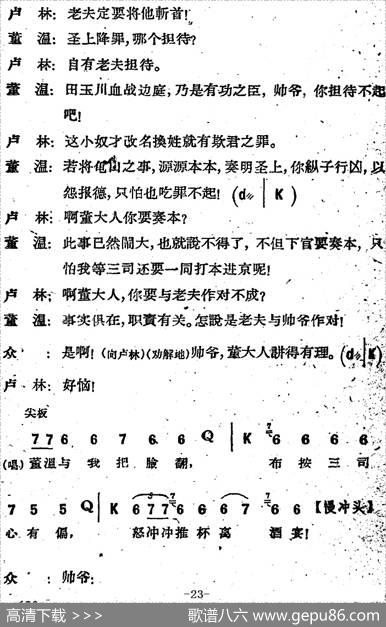 卢 林：老夫定要将他斩首！
董 温：圣上降罪，哪个担待？
卢 林：自有老夫担待。
董 温：田玉川血战边庭，乃是有功之臣，帅爷，你担待不起
吧！
卢 林：这小奴才改名换姓就有欺君之罪。
董 温：若将他 山之事，源源本本，奏明圣上，你纵子行凶，以
怨报德，只怕也吃罪不起！（d〃｜K ）
卢 林：啊董大人你要奏本？
董 温：此事已然闹大，也就说不得了，不但下官要奏本，只
怕我等三司还要一同打本进京呢！
卢 林：啊董大人，你要与老夫作对不成？
董 温：事实俱在，职责有关。怎说是老夫与帅爷作对！
众 ：是啊！（向卢林）（劝解地）帅爷，董大人讲得有理。（d〃｜K）
卢 林：好恼！
尖板
7 7 6 6 7 6. 6 Q ｜ K 7 6 6 6 6 6
（唱）董温与 我 把 脸 翻， 布 按 三 司
7 5 5 Q ｜ K 6 7 7 6 7 6 6 6 7 7 6 6 【慢冲头】
心 有 偏， 怒冲冲推 杯 离 酒 宴！
众 ：帅爷：
-23-
高清下载 >>>
歌谱八六 www.gepu86.com